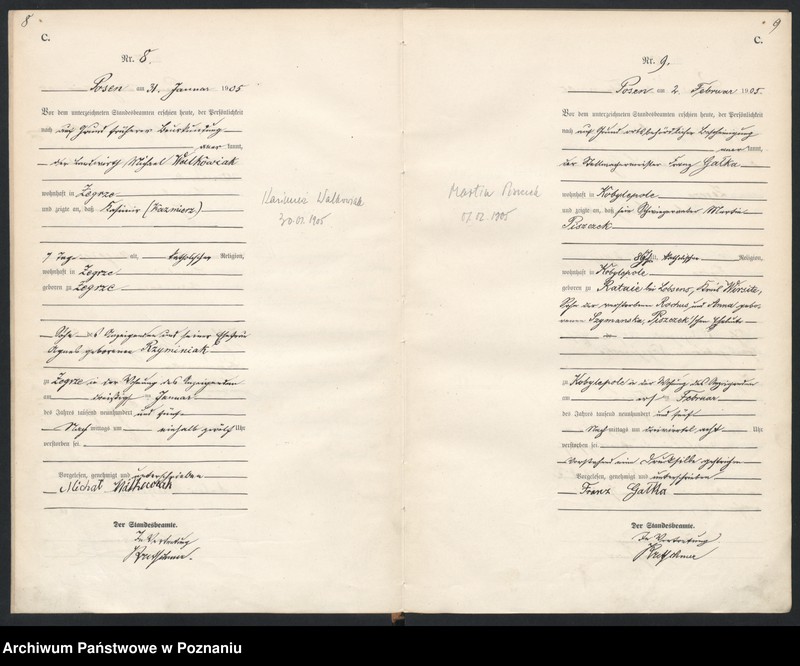 8
C.
Nr. 8.
Posen am 31. Januar 1905
Vor dem unterzeichneten Standesbeamten erschien heute, der Persönlichkeit
nach auf Grund früherer Beurkundung
aner kannt,
der Landwirth Michael Walkowiak
wohnhaft in Zegrze
und zeigte an, daß Kasimir (Kazmierz)
7 Tage alt, katholischer Religion,
wohnhaft in Zegrze
geboren zu Zegrze
Sohn des Anzeigenden und seiner Ehefrau
Agnes geborenen Rzyminiak
zu Zegrze in der Wohnung des Anzeigenden
am dreißigsten Januar
des Jahres tausend neunhundert und fünf
Nach mittags um einhalb zwölf Uhr
verstorben sei.
Vorgelesen, genehmigt und unterschrieben
Michał Walkowiak
Der Standesbeamte.
In Vertretung
Kazimierz Walkowiak
30.01.1905
9
C.
Nr. 9.
Posen am 2. Februar 1905.
Vor dem unterzeichneten Standesbeamten erschien heute, der Persönlichkeit
nach auf Grund ortsbehördlicher Bescheinigung
aner kannt,
der Stellmachermeister Franz Gałka
wohnhaft in Kobylepole
und zeigte an, daß sein Schwiegervater Martin
Piszczek
alt, katholischer Religion,
wohnhaft in Kobylepole
geboren zu Rataie bei Lobsens, Kreis Wirsitz,
Sohn der verstorbenen Rochus und Anna gebo-
renen Szymanska, Piszczek'schen Eheleute
zu Kobylepole in der Wohnung des Anzeigenden
am Februar
des Jahres tausend neunhundert und fünf
Nach mittags um dreiviertel acht Uhr
verstorben sei.
Vorstehend ein Drucksilbe gestrichen
Vorgelesen, genehmigt und unterschrieben
Franz Gałka
Der Standesbeamte.
In Vertretung
Martin
02.1905
Archiwum Państwowe w Poznaniu